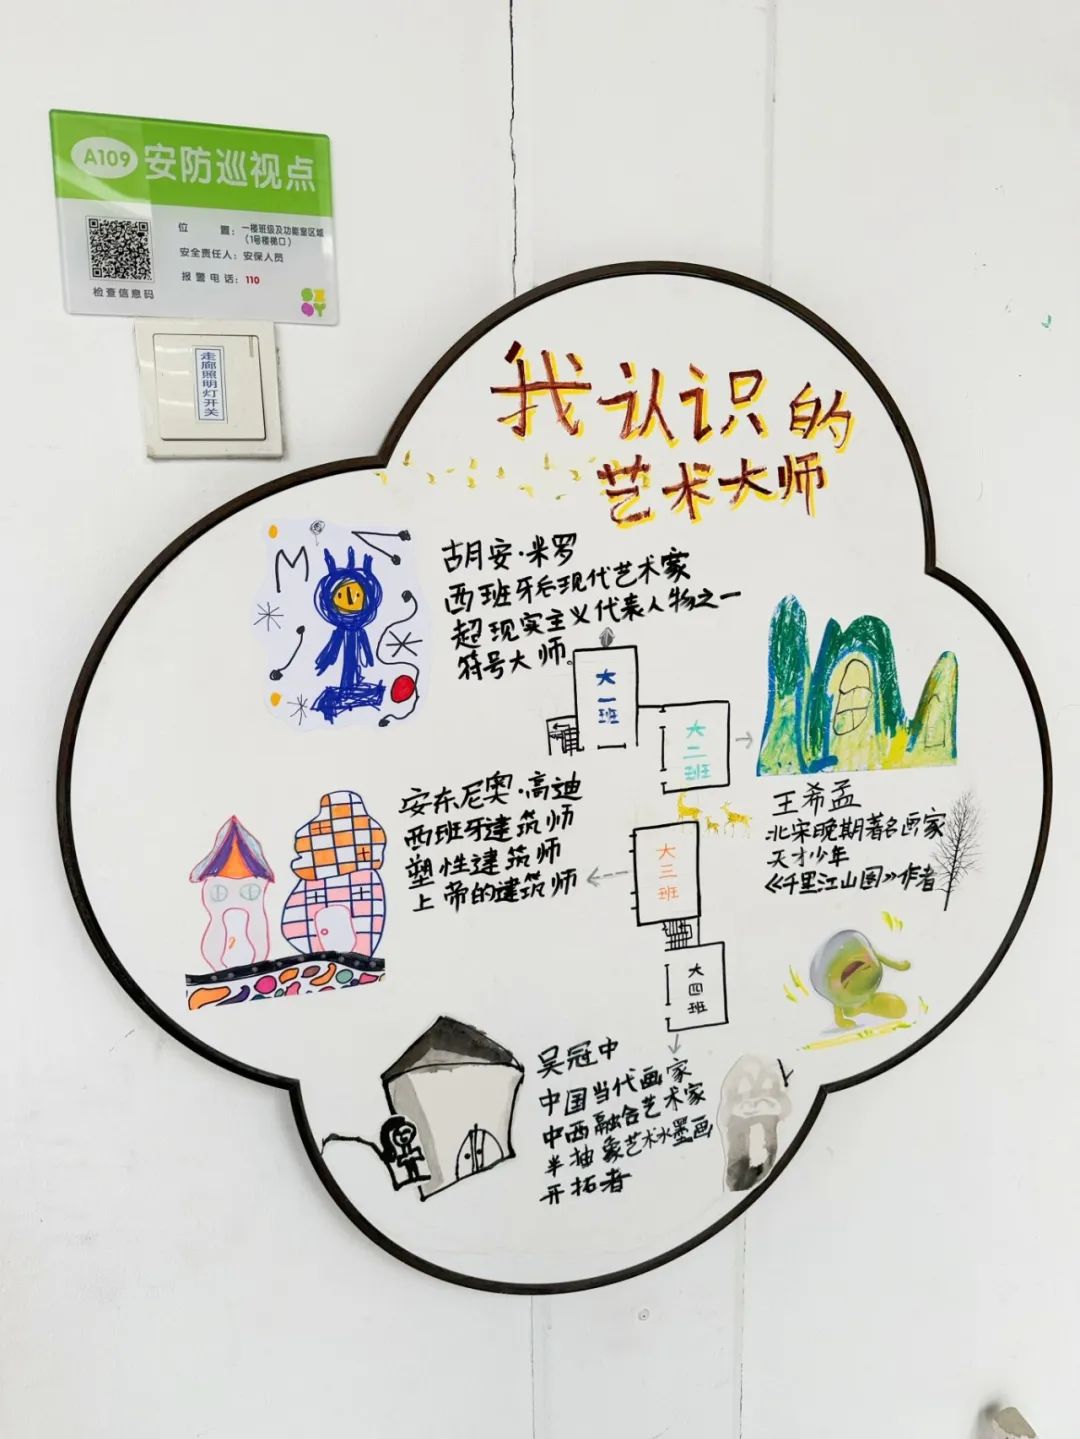 A109 安防巡视点
位 置：一楼班级及功能室区域
（1号楼梯口）
安全责任人：安保人员
报警电话：110
检查信息码
走廊照明灯开关
我认识的
艺术大师
胡安·米罗
西班牙后现代艺术家
超现实主义代表人物之一
符号大师
大一班
大二班
王希孟
北宋晚期著名画家
天才少年
《千里江山图》作者
安东尼奥·高迪
西班牙建筑师
塑性建筑师
上帝的建筑师
大三班
大四班
吴冠中
中国当代画家
中西融合艺术家
半抽象艺术水墨画
开拓者